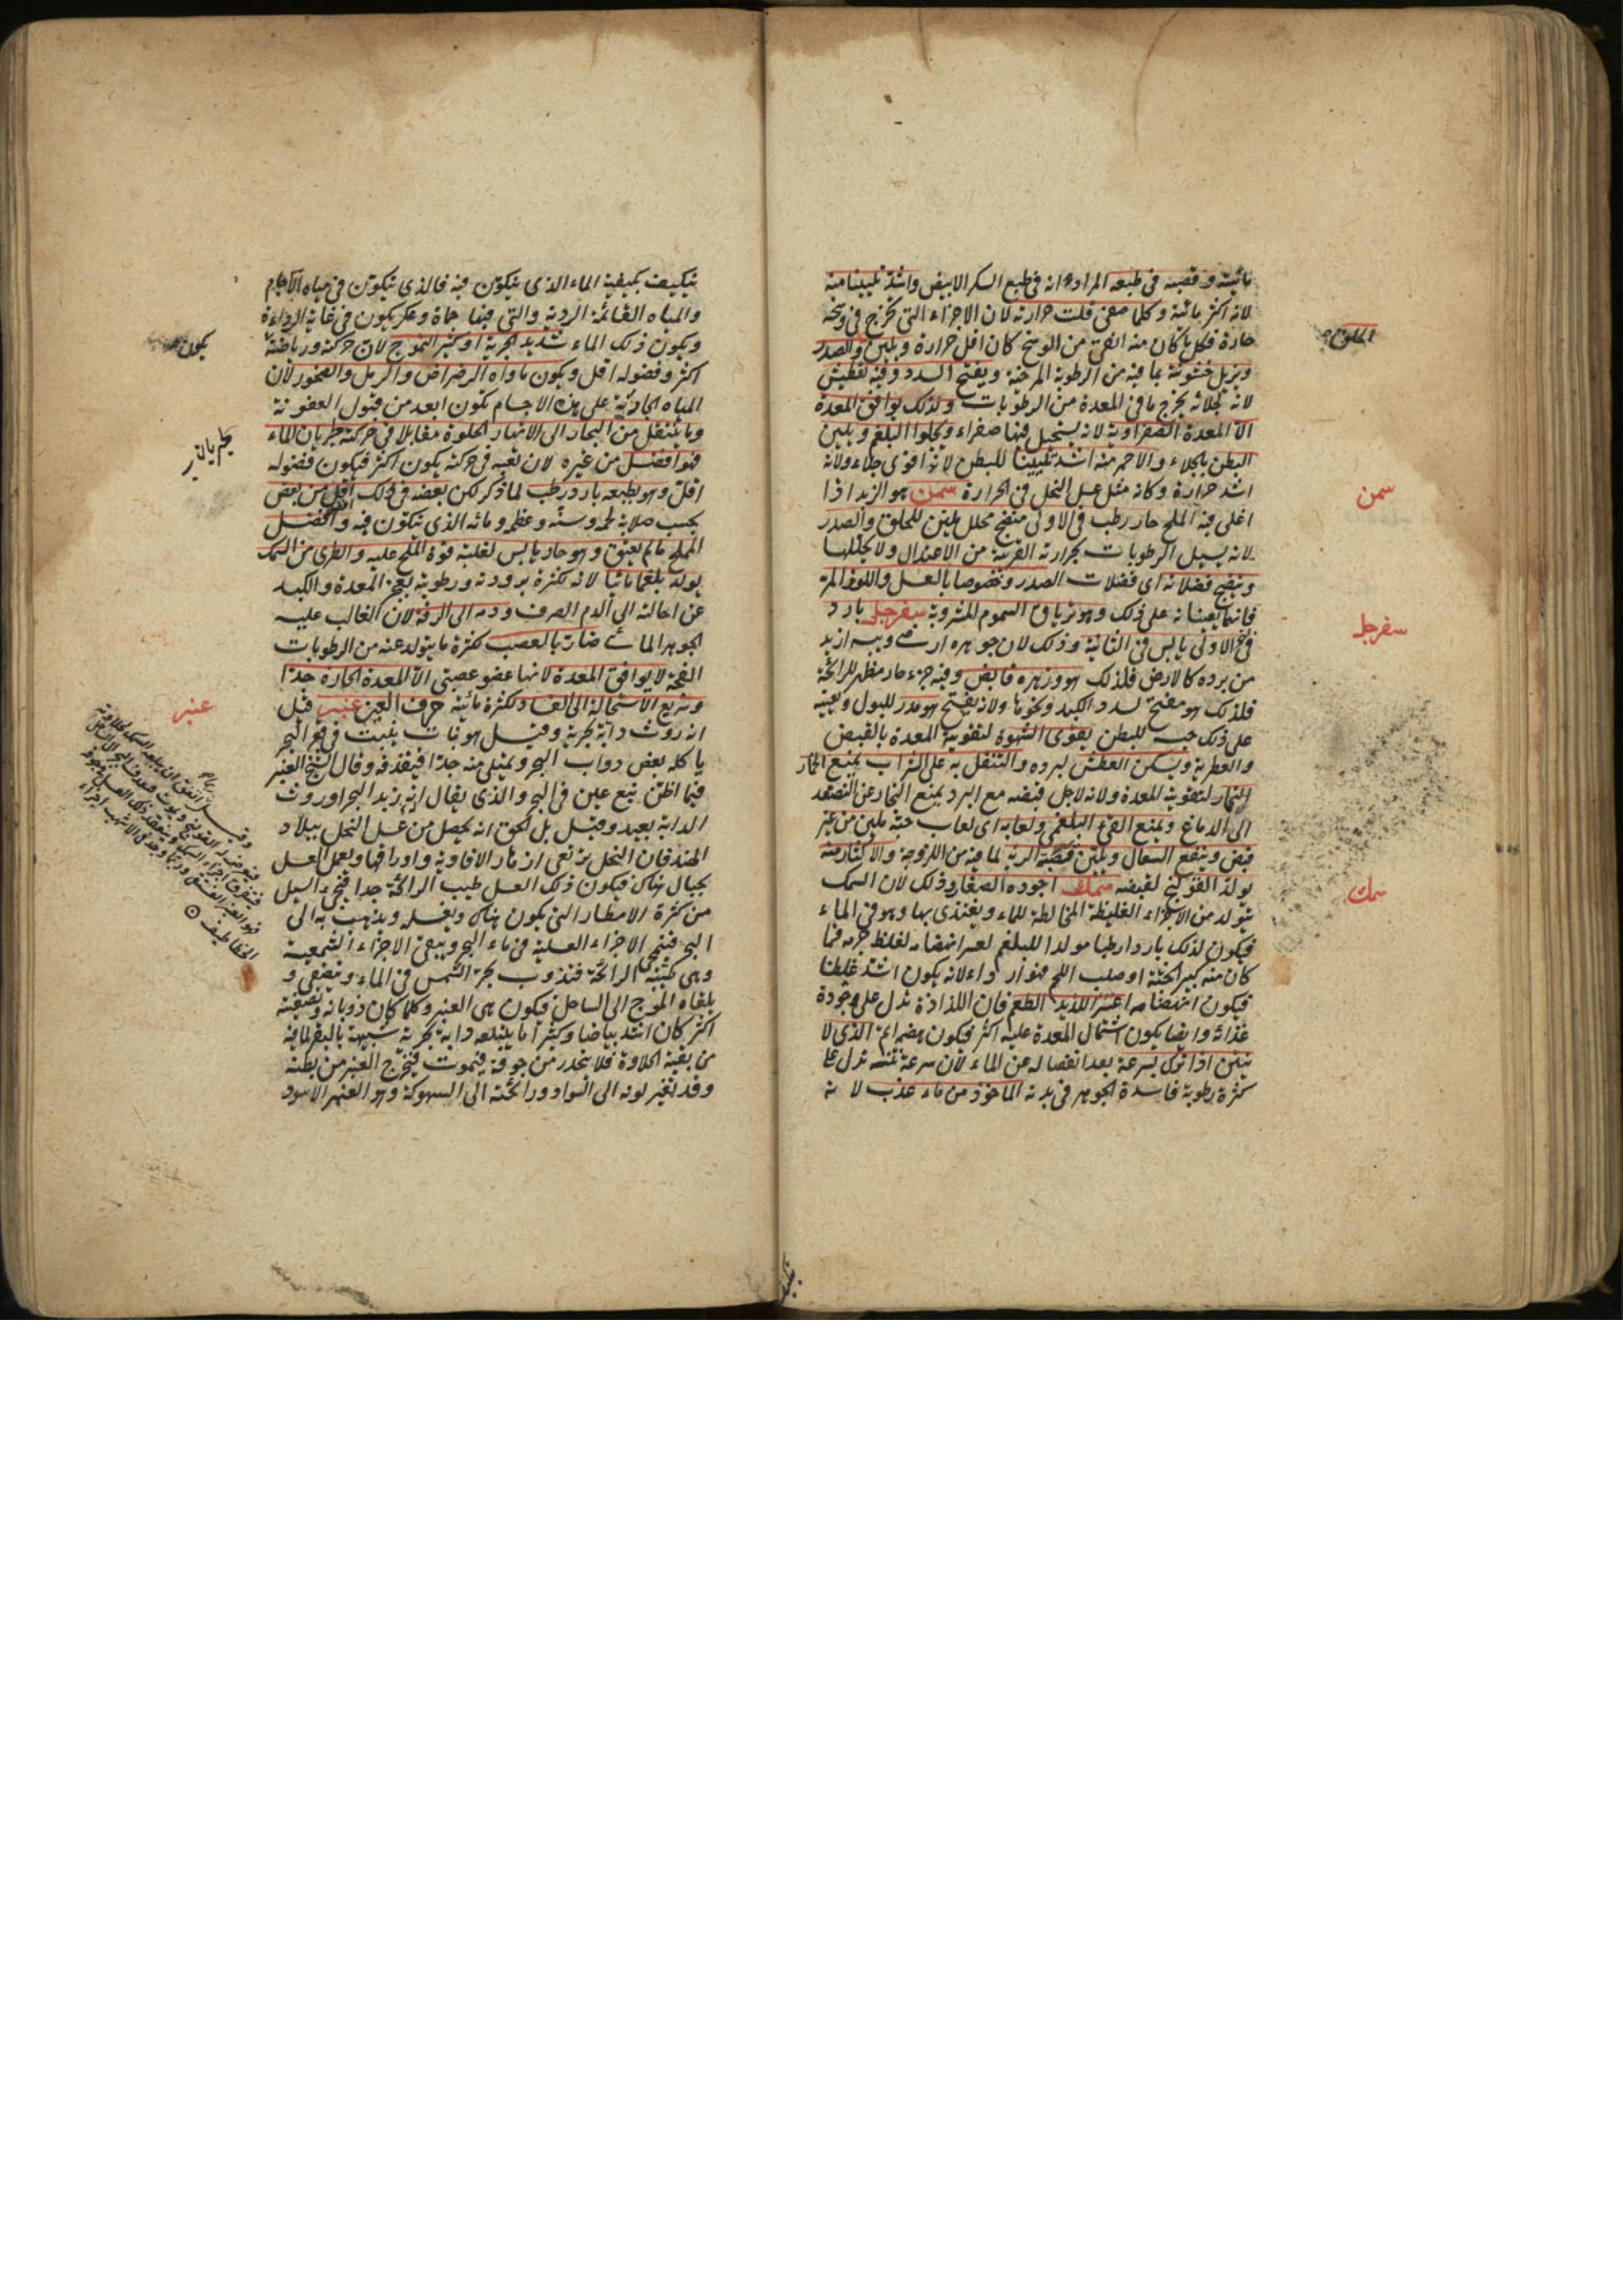 مائية وقصبه في طبعه المراد انه في طبع السكر الابيض واشد تليينا منه
لانه اكثر مائية وكلما صفى قلت حرارته لان الاجزاء التي تخرج في وسخه
حادة فكل ما كان منه انقى من الوسخ كان اقل حرارة ويلين الصدر
الحلق
ويزيل خشونته بما فيه من الرطوبة المرخية ويفتح السدد وفيه تعطيش
لانه بجلائه يخرج ما في المعدة من الرطوبات ولذلك يوافق المعدة
الا المعدة الصفراوية لانه يستحيل فيها صفراء ويجلوا البلغم ويلين
البطن بالجلاء والاحمر منه اشد تليينا للبطن لانه اقوى جلاء ولانه
اشد حرارة وكانه مثل عسل النحل في الحرارة سمن هو الزبد اذا
سمن
اغلى فيه الملح حار رطب في الاولى منضج محلل ملين للحلق والصدر
لانه يسيل الرطوبات بحرارته القريبة من الاعتدال ولا يحللها
وينضج فضلاته اى فضلات الصدر وخصوصا بالعسل واللوز المر
فانهما يعينانه على ذلك وهو ترياق السموم المشروبة سفرجل بارد
سفرجل
في الاولى يابس في الثانية وذلك لان جوهره ارضى ويبسه ازيد
من برده كالارض فلذلك هو وزهره قابض وفيه جزء حار مظهر للرائحة
فلذلك هو مفتح لسدد الكبد ونحوها ولانه يفتح هو مدر للبول ويعينه
على ذلك حبسه للبطن يقوى الشهوة لتقويته المعدة بالقبض
والعطرية ويسكن العطش لبرده والتنقل به على الشراب يمنع الخمار
لتقويته المعدة ولانه لاجل قبضه مع البرد يمنع البخار عن التصعد
الى الدماغ ويمنع القيء البلغمي ولعابه اى لعاب حبه ملين من غير
قبض وينفع السعال ويلين قصبة الرية لما فيه من اللزوجة والاكثار منه
يولد القولنج لقبضه سمك اجوده الصغار وذلك لان السمك
سمك
يتولد من الاجزاء الغليظة المخالطة للماء ويغتذى بها وهو في الماء
فيكون لذلك باردا رطبا مولدا للبلغم لعسر انهضامه لغلظ جرمه فما
كان منه كبير الجثة او صلب اللحم فهو ارداء لانه يكون اشد غلظا
فيكون انهضامه اعسر اللذيذ الطعم فان اللذاذة تدل على جودة
غذائه وايضا يكون اشتمال المعدة عليه اكثر فيكون هضمه اتم الذى لا
ينتن اذا ترك بسرعة بعد انفصاله عن الماء لان سرعة نتنه تدل على
كثرة رطوبة فاسدة الجوهر في بدنه الماخوذ من ماء عذب لانه
يتكيف بكيفية الماء الذى يتكون فيه فالذى يتكون في مياه الآجام
والمياه القائمة الردية والتي فيها حماة وعكر يكون في غاية الرداءة
ويكون ذلك الماء شديد الجرية او كثير التموج لان حركته ورياضته
يكون
اكثر وفضوله اقل ويكون ماواه الرضراض والرمل والصخور لان
المياه الجارية على هذه الاجسام تكون ابعد من قبول العفونة
وما ينتقل من البحار الى الانهار الحلوة مقابلا في حركته جريان الماء
فهو افضل من غيره لان تعبه في حركته يكون اكثر فيكون فضوله
اقل وهو بطبعه بارد رطب لما ذكر لكن بعضه في ذلك اقل من بعض
بحسب صلابة لحمه وسنه وعظمه ومائه الذى يتكون فيه وافضل
المملح ما لم يعتق وهو حار يابس لغلبة قوة الملح عليه والطرى من السمك
يولد بلغما مائيا لانه لكثرة برودته ورطوبته يعجز المعدة والكبد
عن احالته الى الدم الصرف ودمه الى الرقة لان الغالب عليه
الجوهر المائى ضار بالعصب لكثرة ما يتولد عنه من الرطوبات
الفجة لا يوافق المعدة لانها عضو عصبى الا المعدة الحارة جدا
وسريع الاستحالة الى الفساد لكثرة مائيته حرف العين عنبر قيل
عنبر
انه روث دابة بحرية وقيل هو نبات ينبت في قعر البحر
ياكله بعض دواب البحر ويمتلى منه جدا فيقذفه وقال الشيخ العنبر
فيما اظن نبع عين في البحر والذى يقال انه زبد البحر او روث
الدابة بعيد وقيل بل الحق انه يحصل من عسل النحل ببلاد
الهند فان النحل يرتعى ازهار الافاوية واوراقها ويعمل العسل
بجبال هناك فيكون ذلك العسل طيب الرائحة جدا فيجئ السيل
من كثرة الامطار التي يكون هناك ويغسله ويذهب به الى
البحر فتنمحى الاجزاء العسلية في ماء البحر ويبقى الاجزاء الشمعية
وهى طيبة الرائحة فتذوب بحر الشمس في الماء وتصفى و
يلقاه الموج الى الساحل فيكون هى العنبر وكلما كان ذوبانه وتصفيته
اكثر كان اشد بياضا وكثيرا ما يبتلعه دابة بحرية شبيهة بالبقر لما فيه
من بقية الحلاوة فلا ينحدر من جوفه فيموت فيخرج العنبر من بطنه
وقد تغير لونه الى السواد ورائحته الى السهوكة وهو العنبر الاسود